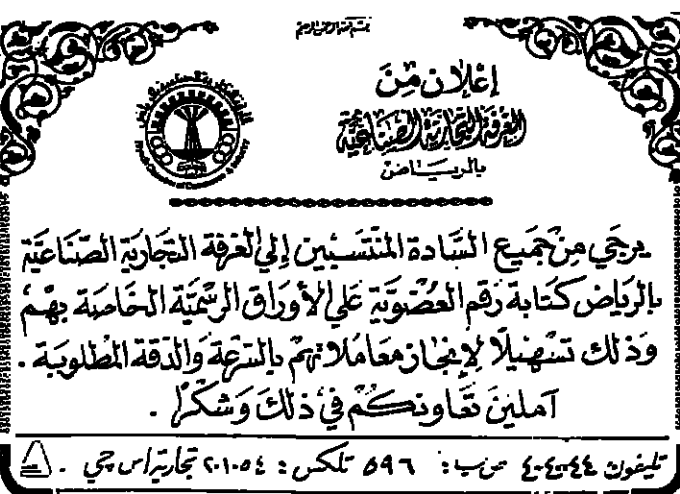 بسم الله الرحمن الرحيم
إعلان من
الغرفة التجارية الصناعية
بالرياض
يرجى من جميع السادة المنتسبين إلى الغرفة التجارية الصناعية
بالرياض كتابة رقم العضوية على الأوراق الرسمية الخاصة بهم
وذلك تسهيلاً لإنجاز معاملاتهم بالسرعة والدقة المطلوبة .
آملين تعاونكم في ذلك وشكراً .
تليفون ٤٠٤٠٠٤٤ ص.ب: ٥٩٦ تلكس: ٢٠١٠٥٤ تجارية إس جي .